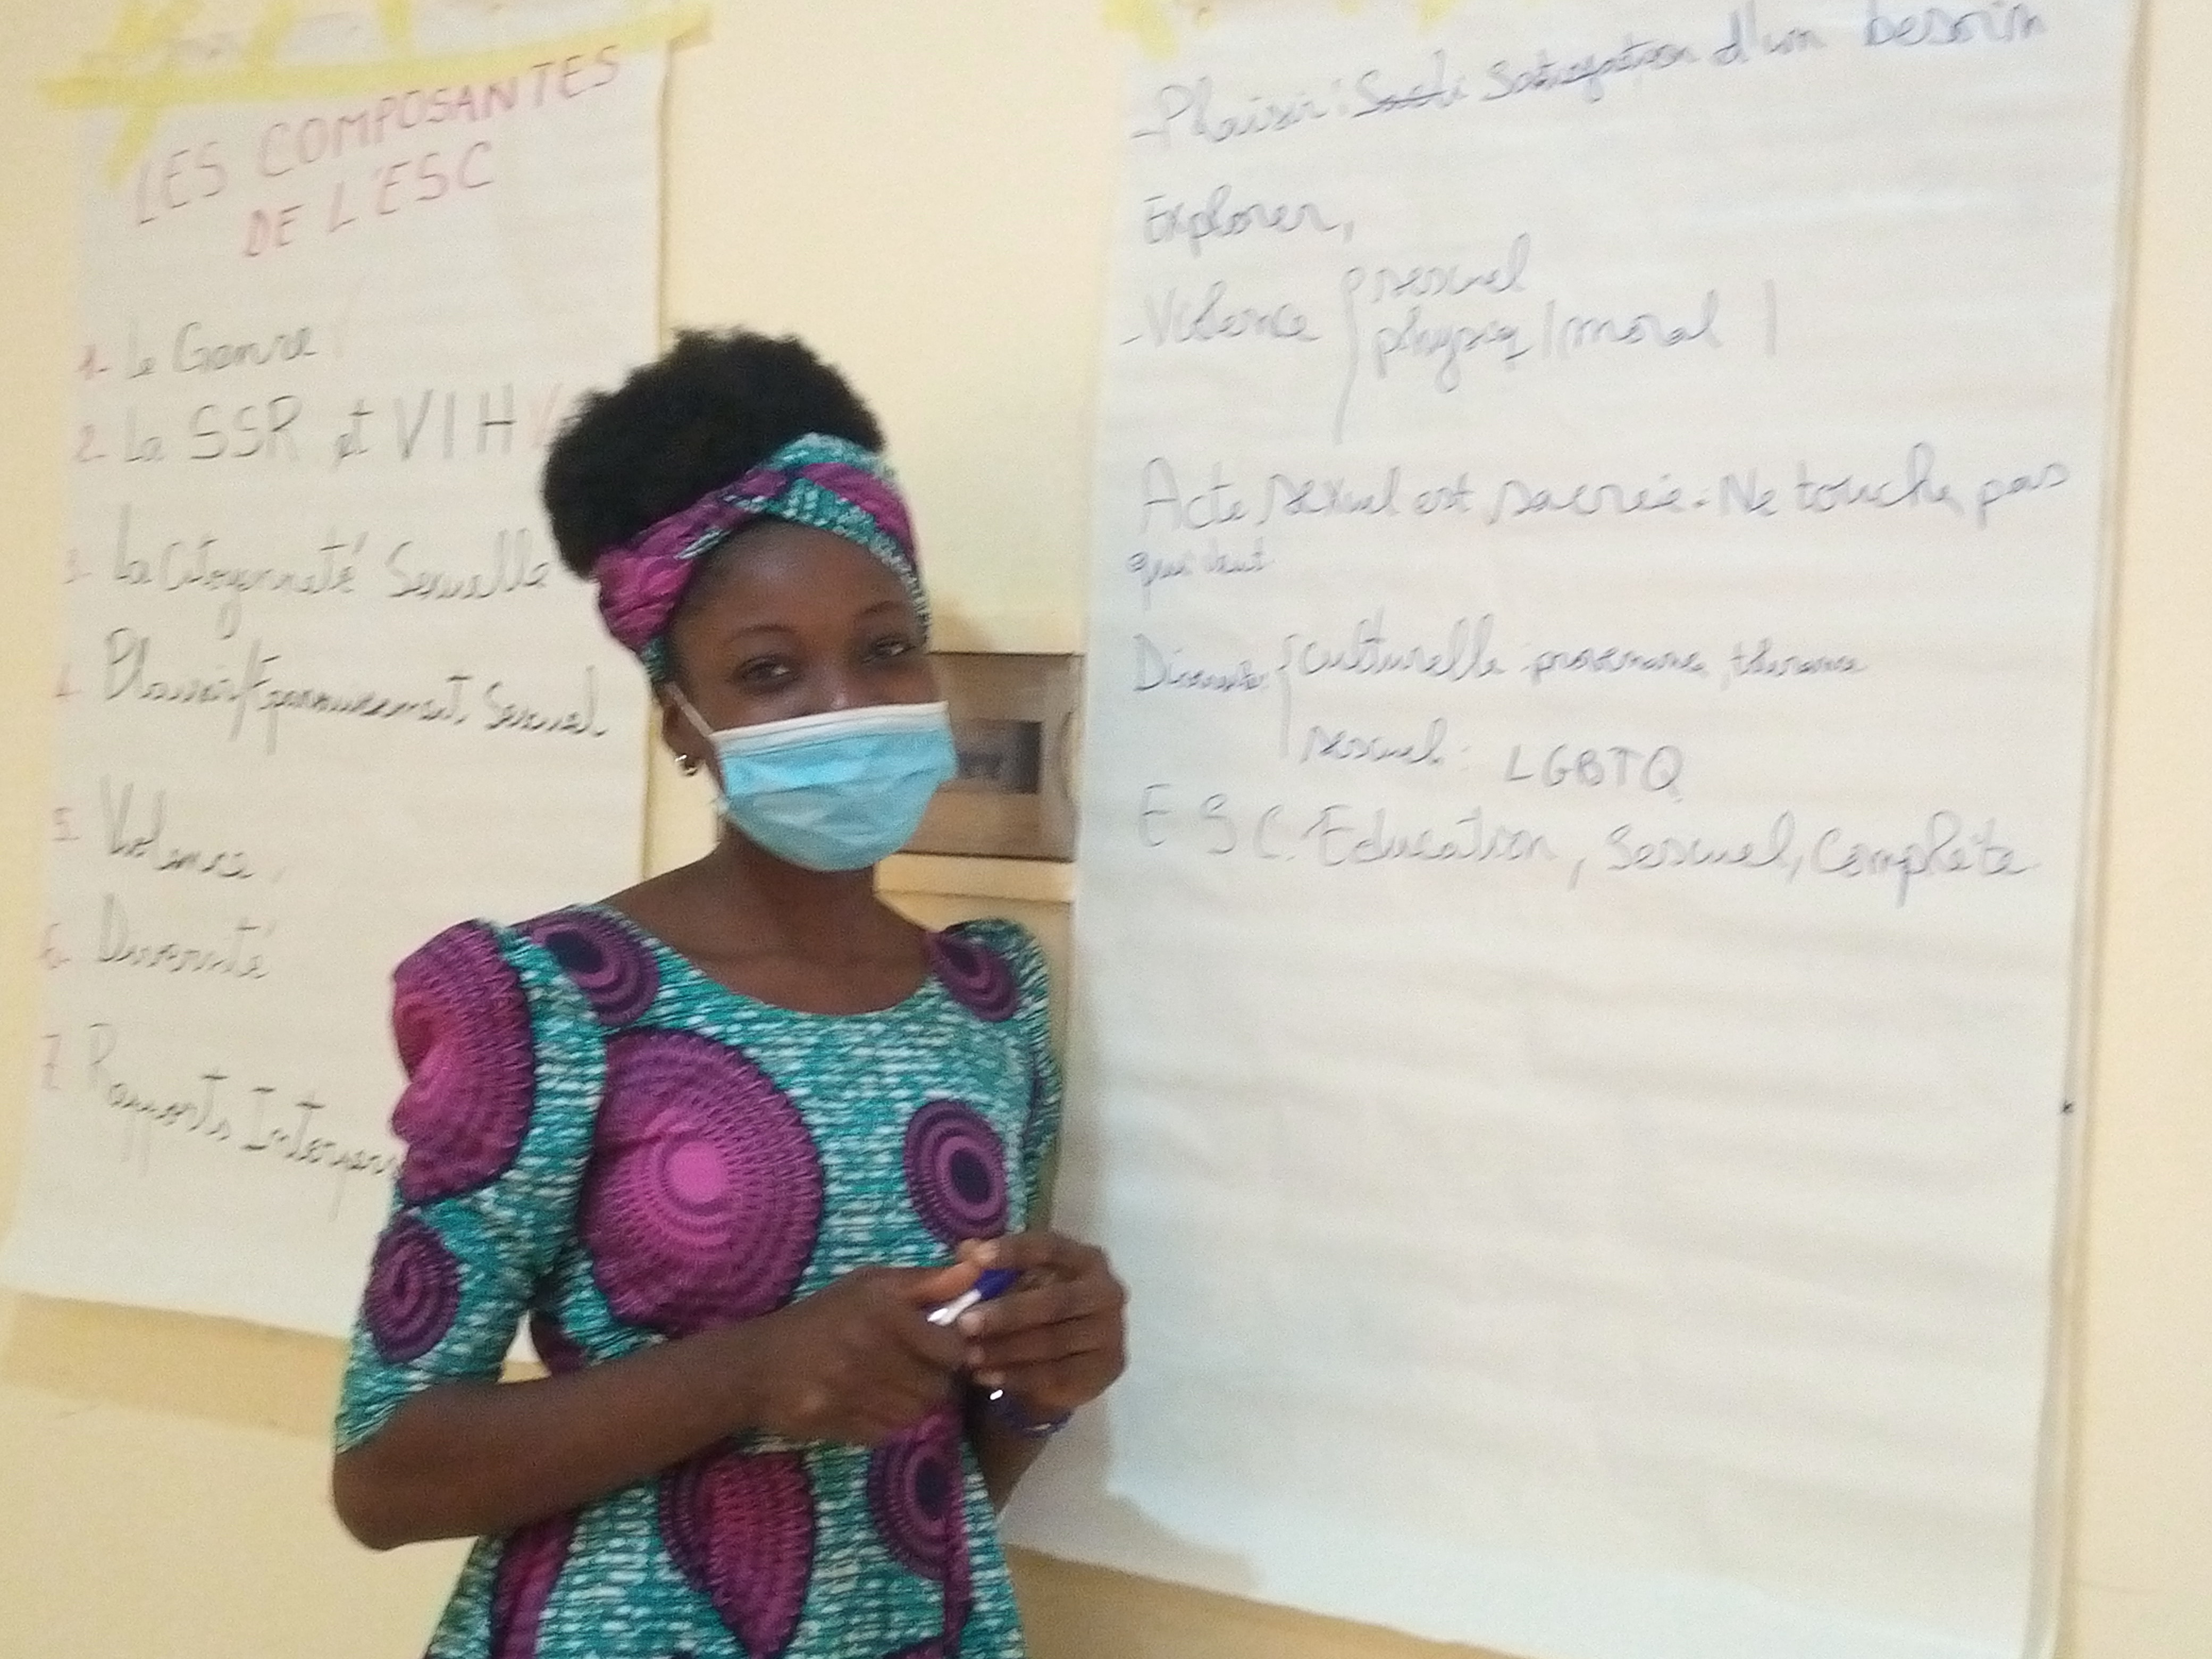 LES COMPOSANTES
DE L'ESC
1. Le Genre
2. La SSR et VIH
3. La Citoyenneté Sexuelle
4. Plaisir/Epanouissement Sexuel
5. Violence
6. Diversité
7. Rapports Interpers
- Plaisir: Satisfaction d'un besoin
Explorer,
- Violence { sexuel
physiq / moral
Acte sexuel est sacrée. Ne touche pas
qui veut
Diversité { culturelle
sexuel : LGBTQ
ESC: Education, Sexuel, Complète